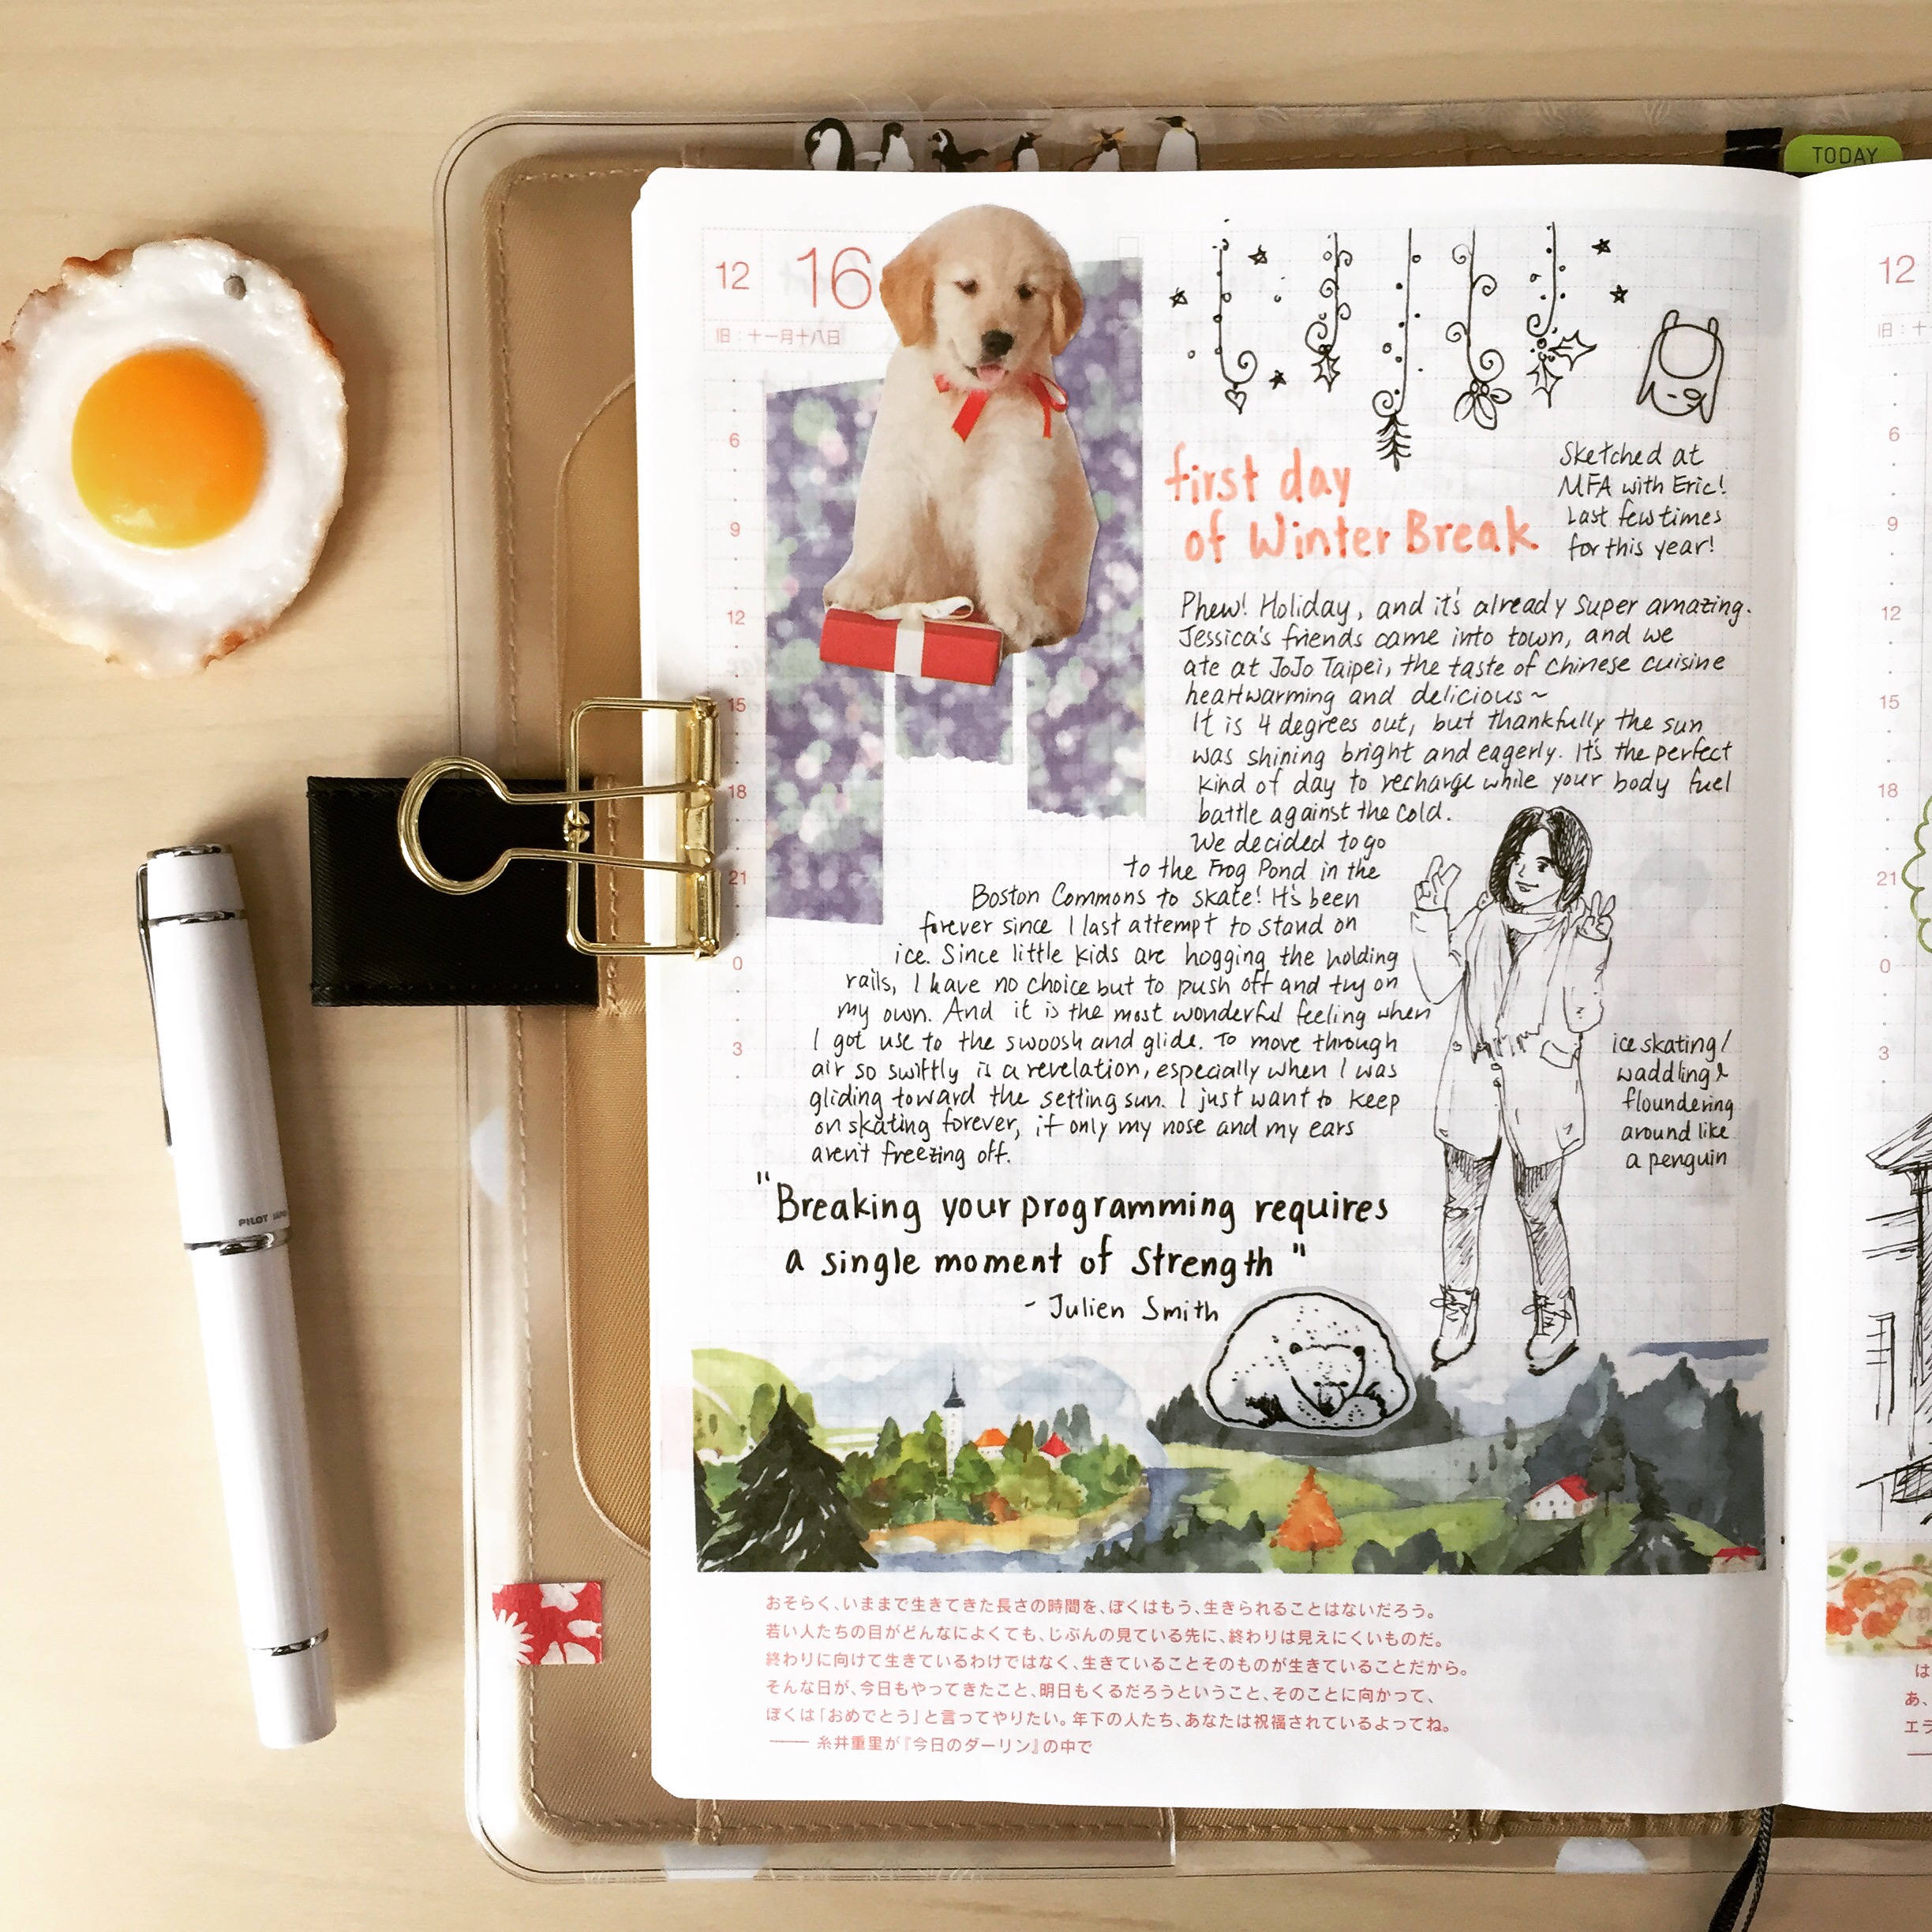 TODAY
12 16
旧：十一月十八日
first day
of Winter Break
Sketched at
MFA with Eric!
Last few times
for this year!
Phew! Holiday, and it's already super amazing.
Jessica's friends came into town, and we
ate at JoJo Taipei, the taste of chinese cuisine
heartwarming and delicious~
It is 4 degrees out, but thankfully the sun
was shining bright and eagerly. It's the perfect
kind of day to recharge while your body fuel
battle against the cold.
We decided to go
to the Frog Pond in the
Boston Commons to skate! It's been
forever since I last attempt to stand on
ice. Since little kids are hogging the holding
rails, I have no choice but to push off and try on
my own. And it is the most wonderful feeling when
I got use to the swoosh and glide. To move through
air so swiftly is a revelation, especially when I was
gliding toward the setting sun. I just want to keep
on skating forever, if only my nose and my ears
aren't freezing off.
ice skating/
waddling &
floundering
around like
a penguin
"Breaking your programming requires
a single moment of Strength"
- Julien Smith
6
9
12
15
18
21
0
3
おそらく、いままで生きてきた長さの時間を、ぼくはもう、生きられることはないだろう。
若い人たちの目がどんなによくても、じぶんの見ている先に、終わりは見えにくいものだ。
終わりに向けて生きているわけではなく、生きていることそのものが生きていることだから。
そんな日が、今日もやってきたこと、明日もくるだろうということ、そのことに向かって、
ぼくは「おめでとう」と言ってやりたい。年下の人たち、あなたは祝福されているよってね。
—— 糸井重里が『今日のダーリン』の中で
PILOT JAPAN
12
旧：十
6
9
12
15
18
21
0
3
は
あ、
エラ